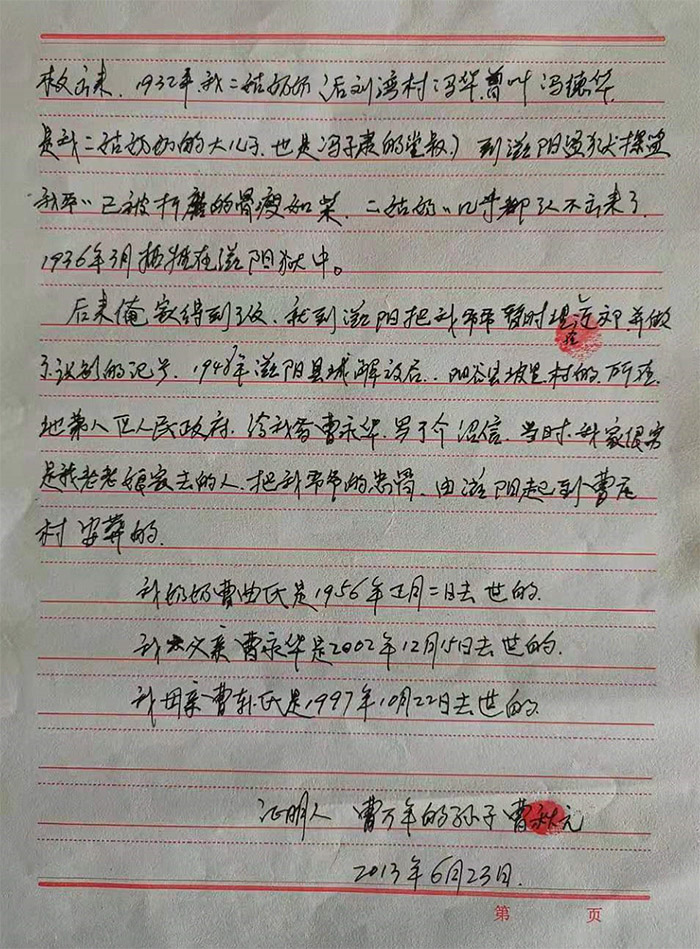 救出来. 1932年. 我二姑奶奶 (后刘湾村冯华. 曾叫冯德华
是我二姑奶奶的大儿子. 也是冯子康的堂叔.) 到滋阳监狱探监
我爷〃已被折磨的骨瘦如柴. 二姑奶〃几乎都认不出来了.
1936年3月牺牲在滋阳狱中。
后来俺家得到了信. 就到滋阳把我爷爷暂时埋 并做
了识别的记号. 1948年滋阳县城解放后.. 阳谷县坡里村的.
地第八区人民政府. 给我 曹永华. 写了个 信. 当时. 我家很穷
是我老老娘家去的人. 把我爷爷的 骨. 由滋阳起到曹庄
村安葬的.
我奶奶曹曲氏是1956年正月二日去世的.
我父亲曹永华是2002年12月15日去世的.
我母亲曹 氏是1997年10月22日去世的.
证明人 曹万年的孙子曹秋元
2013年6月23日.
第 页